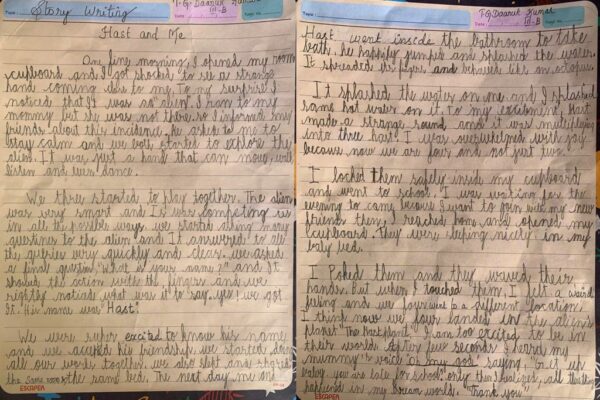 Story Writing
T.G. Daaruk
III-B
Hast and Me
One fine morning, I opened my room
cupboard and I got shocked to see a strange
hand coming close to me. To my surprise I
noticed that it was an alien. I ran to my
mommy but she was not there. so I informed my
friends about this incidence. he asked to me to
stay calm and we both started to explore the
alien. It was just a hand that can move, walk
listen and even dance.
We three started to play together. The alien
was very smart and It was competing us
in all the possible ways. we started asking more
questions to the alien and It answered to all
the queries very quickly and clear. we asked
a final question "What is your name?" and It
showed the action with the fingers and we
rightly noticed what was it to say. yes! we got
it. His name was "Hast!"
We were super excited to know his name
and we accepted his friendship. we started do
all our works together. we also slept and shared
the same room & the same bed. The next day me and
ESCAPER
T.G. Daaruk Kumar
III-B
Hast went inside the bathroom to take
bath. he happily jumped and splashed the water.
It spreaded its fingers and behaved like an octopus.
It splashed the water on me and I splashed
some hot water on it. to my excitement, Hast
made a strange sound and it was multiplying
into three hast. I was overwhelmed with joy
because now we are four and not just two.
I locked them safely inside my cupboard
and went to school. I was waiting for the
evening to come because I want to join with my new
friends then. I reached home and opened my
cupboard. They were sleeping nicely in my
baby bed.
I Poked them and they waved their
hands. But when I touched them, I felt a weird
feeling and we four were in a different location.
I think now we four landed in the alien's
planet "The hast planet". I am too excited to be in
their world. After few seconds I heard my
mummy's voice "O my god" saying "Get up
baby you are late for school." only then I realized, all things
happened in my dream world. "Thank you"
ESCAPER